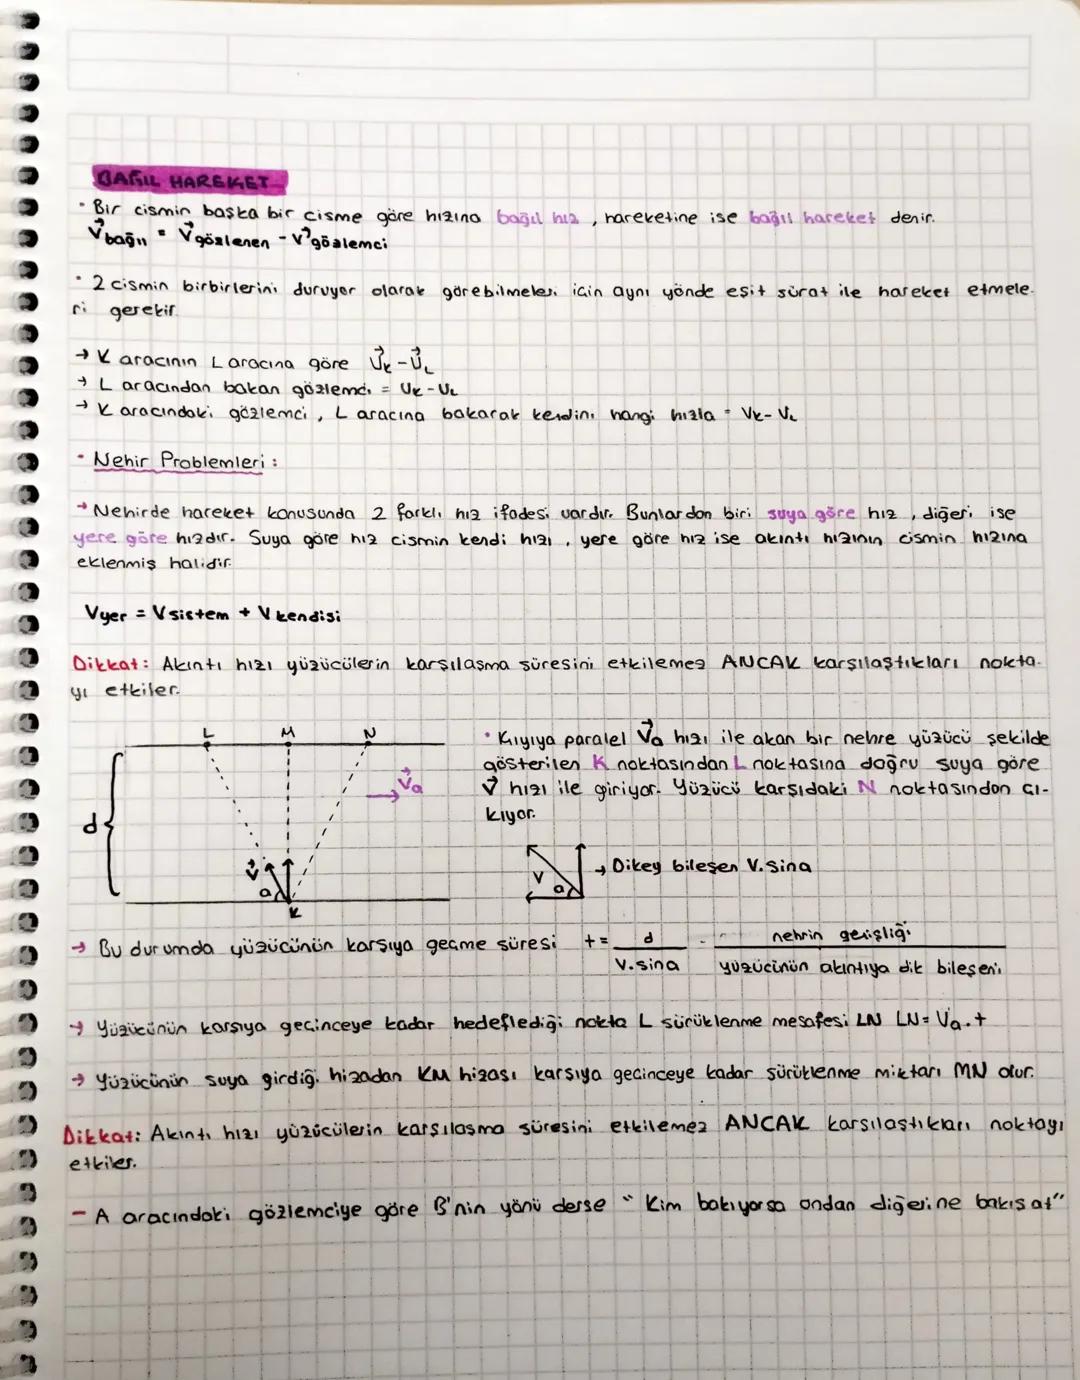 BAĞIL HAREKET
• Bir cismin başka bir cisme göre hızına bağıl hız , hareketine ise bağıl hareket denir.
V⃗bağıl = V⃗gözlenen - V⃗gözlemci
• 2 cismin birbirlerini duruyor olarak görebilmeleri için aynı yönde eşit sürat ile hareket etmele-
ri gerekir
→ K aracının L aracına göre V⃗K - V⃗L
→ L aracından bakan gözlemci = VK - VL
→ K aracındaki gözlemci , L aracına bakarak kendini hangi hızla = VK - VL
• Nehir Problemleri :
→ Nehirde hareket konusunda 2 farklı hız ifadesi vardır. Bunlardan biri suya göre hız , diğeri ise
yere göre hızdır. Suya göre hız cismin kendi hızı , yere göre hız ise akıntı hızının cismin hızına
eklenmiş halidir.
Vyer = Vsistem + Vkendisi
Dikkat: Akıntı hızı yüzücülerin karşılaşma süresini etkilemez ANCAK karşılaştıkları nokta-
yı etkiler.
L M N
• Kıyıya paralel V⃗a hızı ile akan bir nehre yüzücü şekilde
gösterilen K noktasından L noktasına doğru suya göre
V⃗a
V⃗ hızı ile giriyor. Yüzücü karşıdaki N noktasından çı-
kıyor.
d
V⃗ a
K
V a → Dikey bileşen V.sina
→ Bu durumda yüzücünün karşıya geçme süresi t = d / V.sina = nehrin genişliği / yüzücünün akıntıya dik bileşeni
→ Yüzücünün karşıya geçinceye kadar hedeflediği nokta L sürüklenme mesafesi LN LN = Va.t
→ Yüzücünün suya girdiği hizadan KM hizası karşıya geçinceye kadar sürüklenme miktarı MN olur.
Dikkat: Akıntı hızı yüzücülerin karşılaşma süresini etkilemez ANCAK karşılaştıkları noktayı
etkiler.
- A aracındaki gözlemciye göre B'nin yönü derse " Kim bakıyorsa ondan diğerine bakış at"